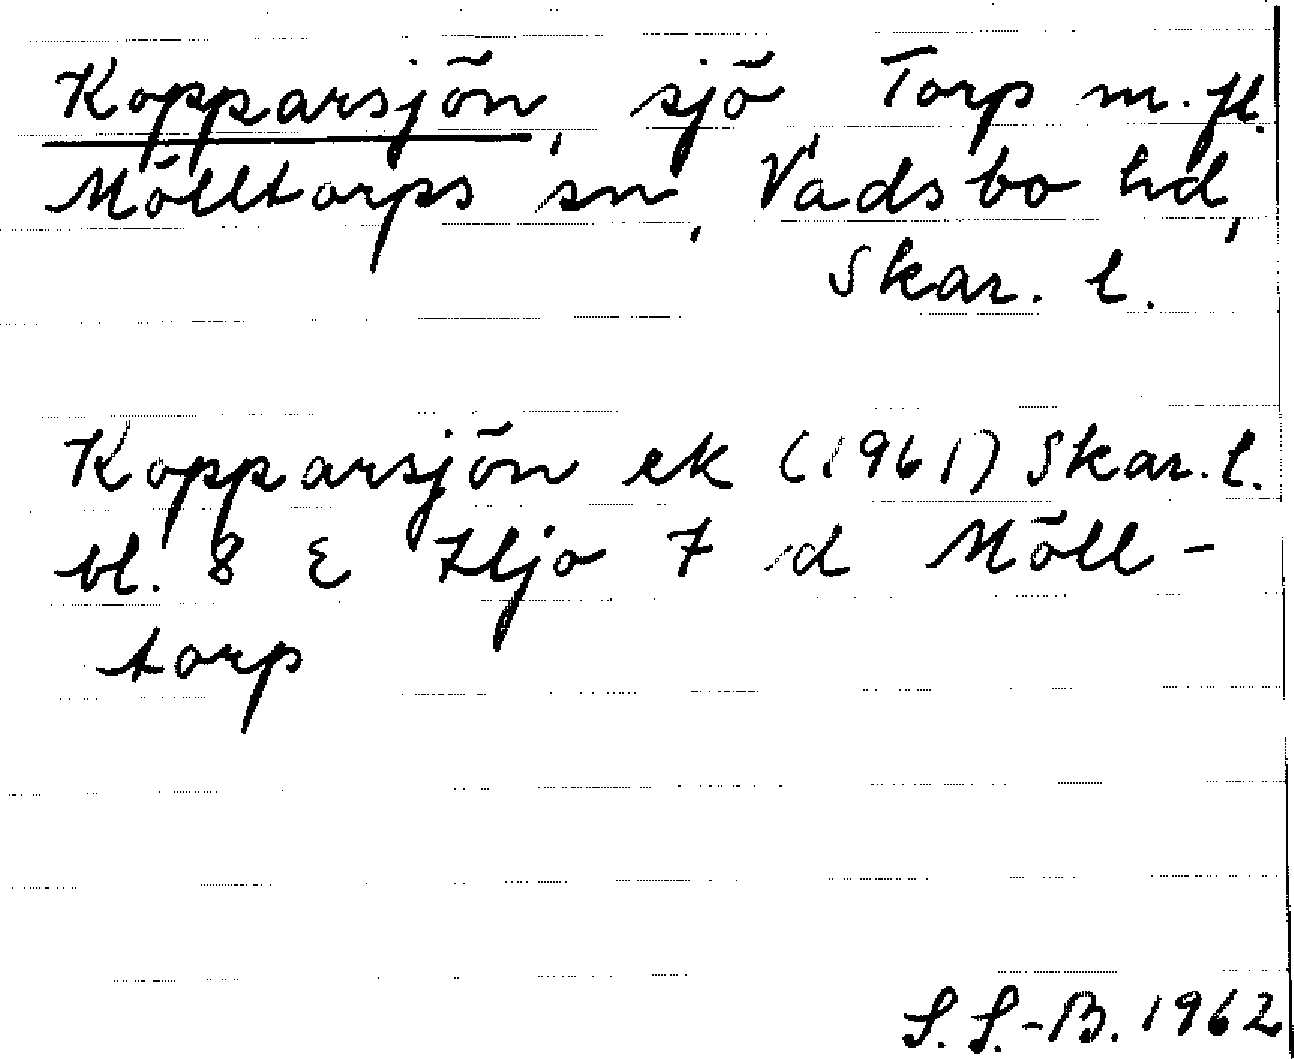 Kopparsjön, sjö Torp m. fl.
Mölltorps sn, Vadsbo hd,
Skar. l.
Kopparsjön ek (1961) Skar. l.
bl. 8 E Hjo 7 d Möll-
torp
S. S.-B. 1962